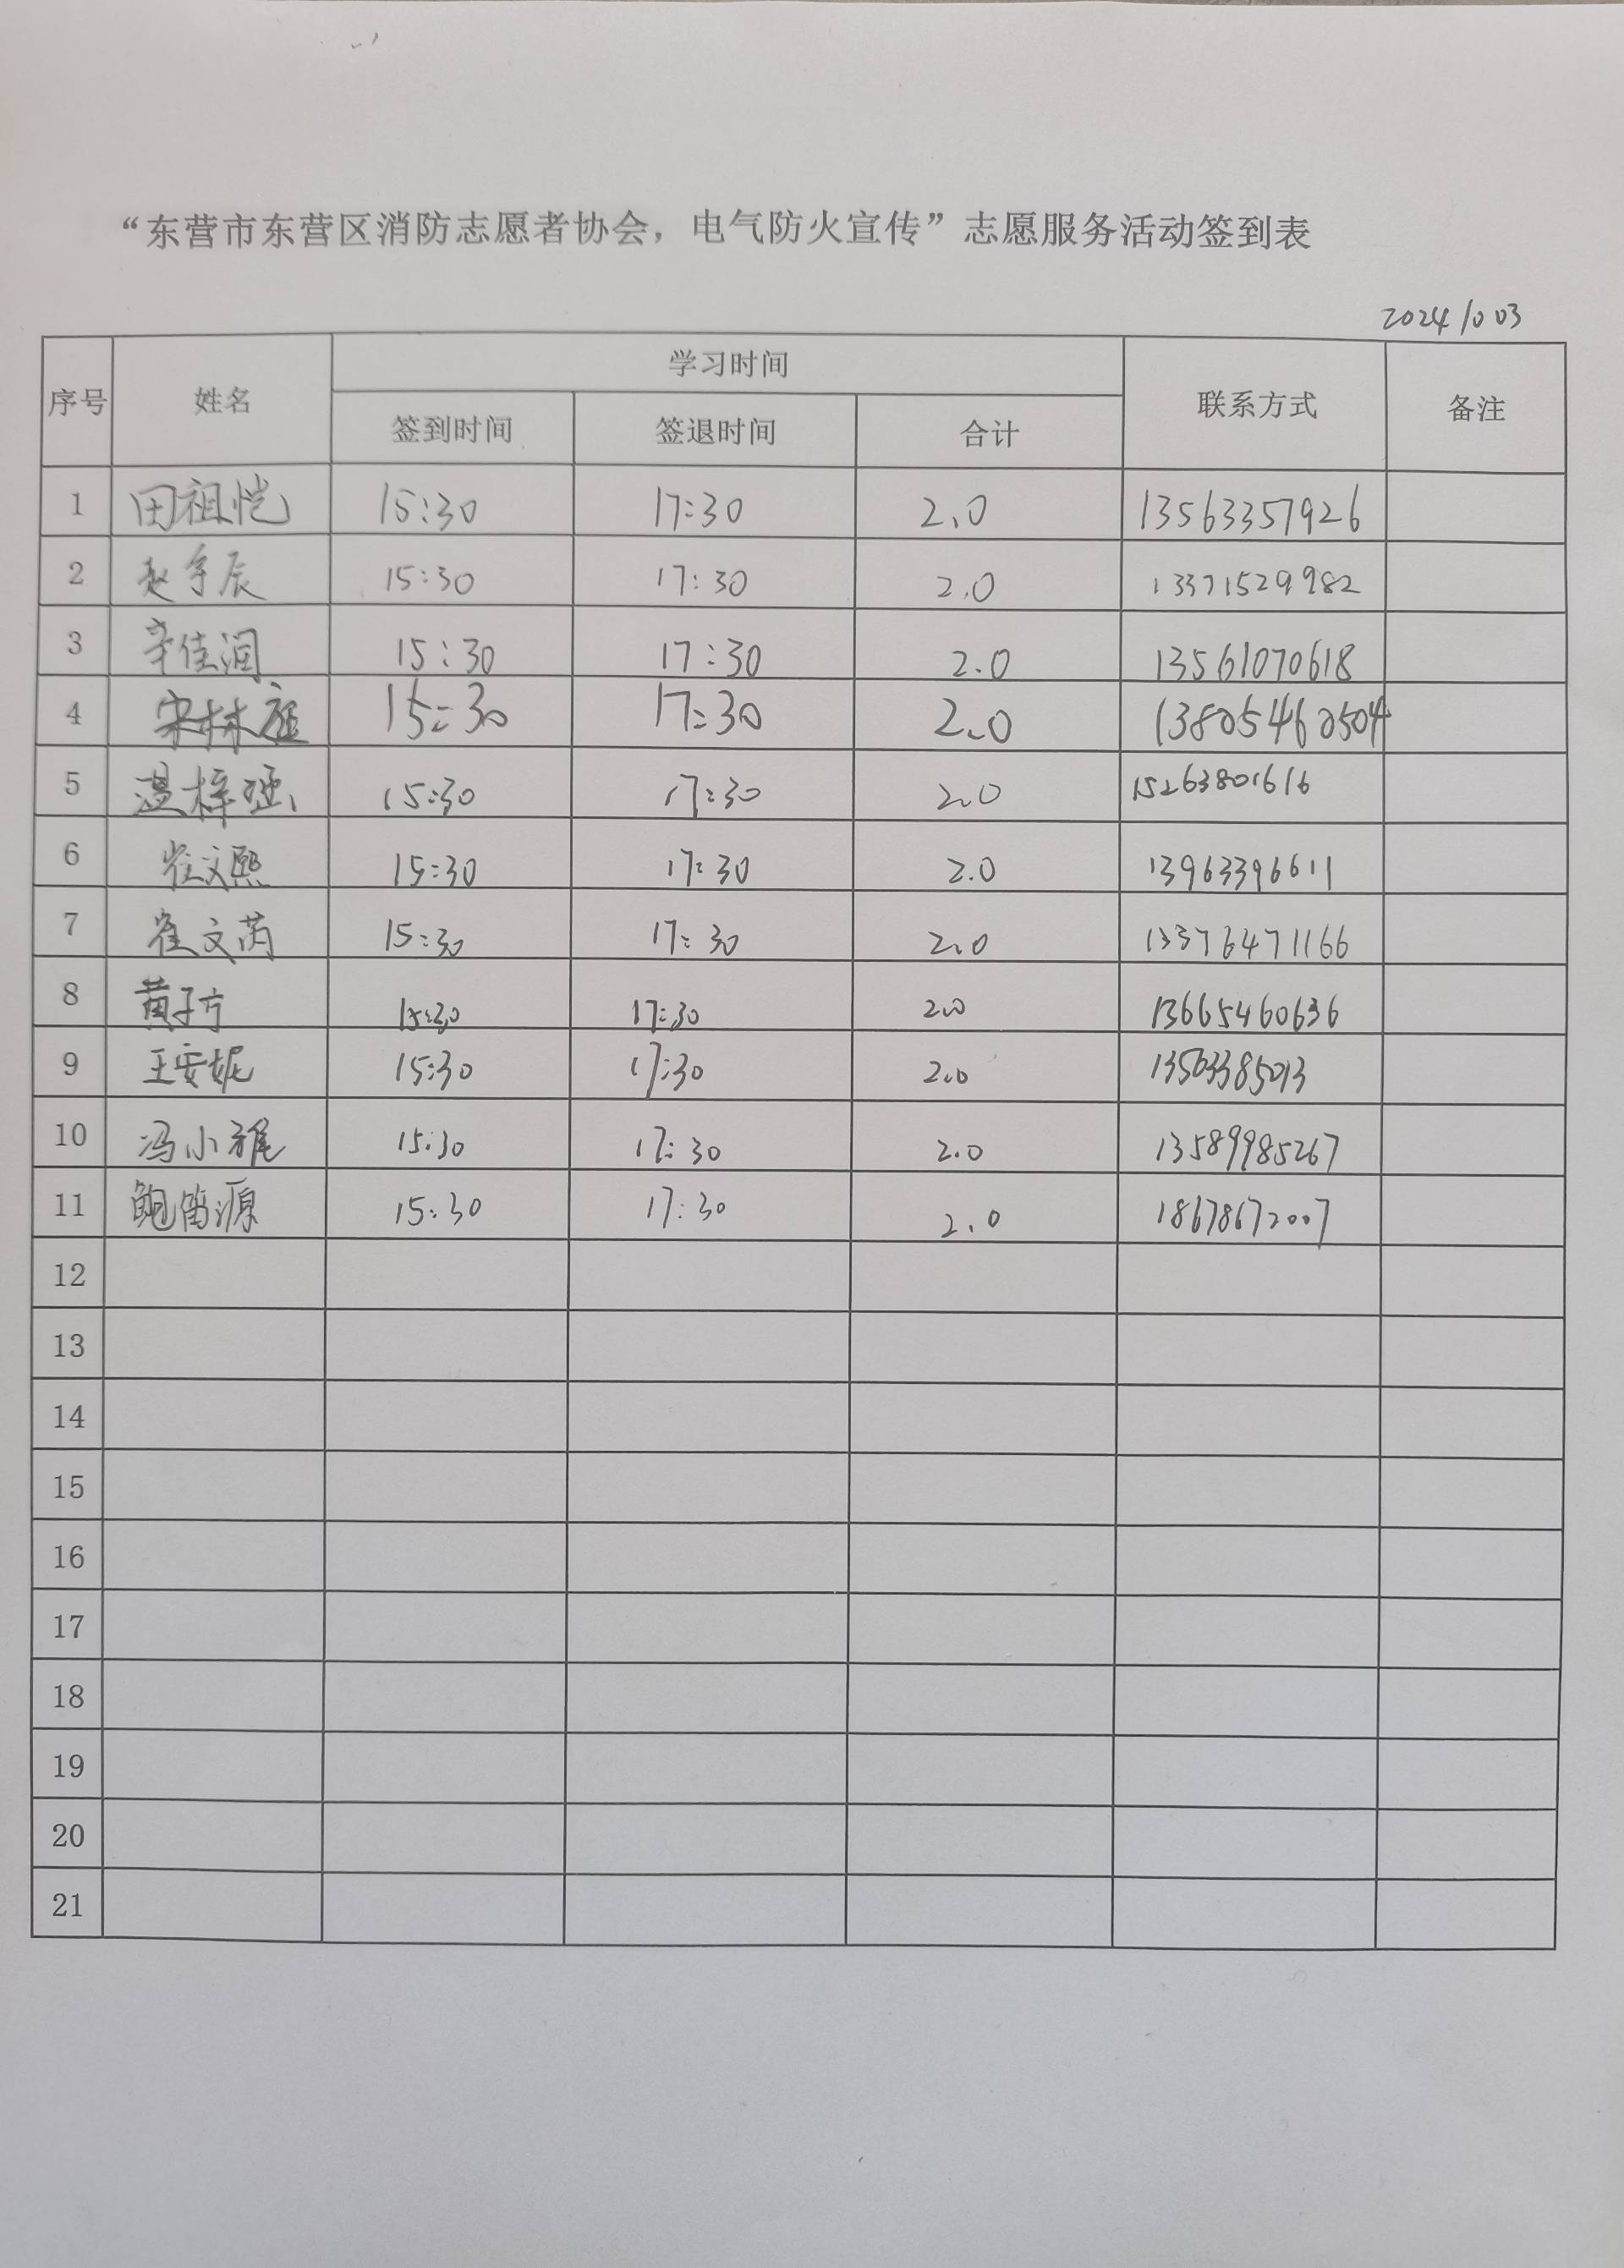 “东营市东营区消防志愿者协会，电气防火宣传”志愿服务活动签到表
2024/003
序号 姓名 学习时间 联系方式 备注
签到时间 签退时间 合计
1 田祖恺 15:30 17:30 2.0 13563357926
2 赵宇辰 15:30 17:30 2.0 13371529982
3 辛佳润 15:30 17:30 2.0 13561070618
4 宋林 15:30 17:30 2.0 13805460504
5 温梓涵 15:30 17:30 2.0 15263801616
6 崔文熙 15:30 17:30 2.0 13963396611
7 崔文芮 15:30 17:30 2.0 13376471166
8 黄子方 15:30 17:30 2.0 13665460636
9 王安妮 15:30 17:30 2.0
10 冯小雅 15:30 17:30 2.0 13589985267
11 鲍笛源 15:30 17:30 2.0 18678672007
12
13
14
15
16
17
18
19
20
21